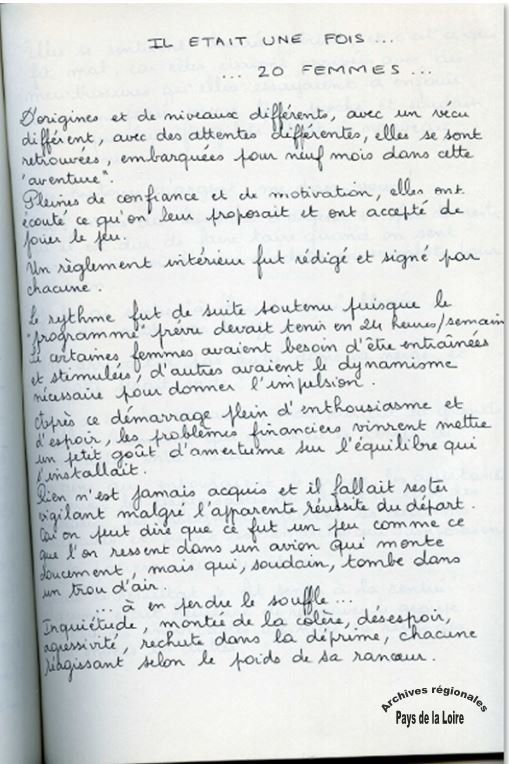 IL ETAIT UNE FOIS...
... 20 FEMMES ...
D'origines et de niveaux différents, avec un vécu
différent, avec des attentes différentes, elles se sont
retrouvées, embarquées pour neuf mois dans cette
"aventure".
Pleines de confiance et de motivation, elles ont
écouté ce qu'on leur proposait et ont accepté de
jouer le jeu.
Un règlement intérieur fut rédigé et signé par
chacune.
Le rythme fut de suite soutenu puisque le
"programme" prévu devait tenir en 24 heures/semaine
Si certaines femmes avaient besoin d'être entraînées
et stimulées, d'autres avaient le dynamisme
nécessaire pour donner l'impulsion.
Après ce démarrage plein d'enthousiasme et
d'espoir, les problèmes financiers vinrent mettre
un petit goût d'amertume sur l'équilibre qui
s'installait.
Rien n'est jamais acquis et il fallait rester
vigilant malgré l'apparente réussite du départ.
on peut dire que ce fut un peu comme ce
que l'on ressent dans un avion qui monte
doucement, mais qui, soudain, tombe dans
un trou d'air.
... à en perdre le souffle...
Inquiétude, montée de la colère, désespoir,
agressivité, rechute dans la déprime, chacune
réagissant selon le poids de sa rancœur.
Archives régionales
Pays de la Loire